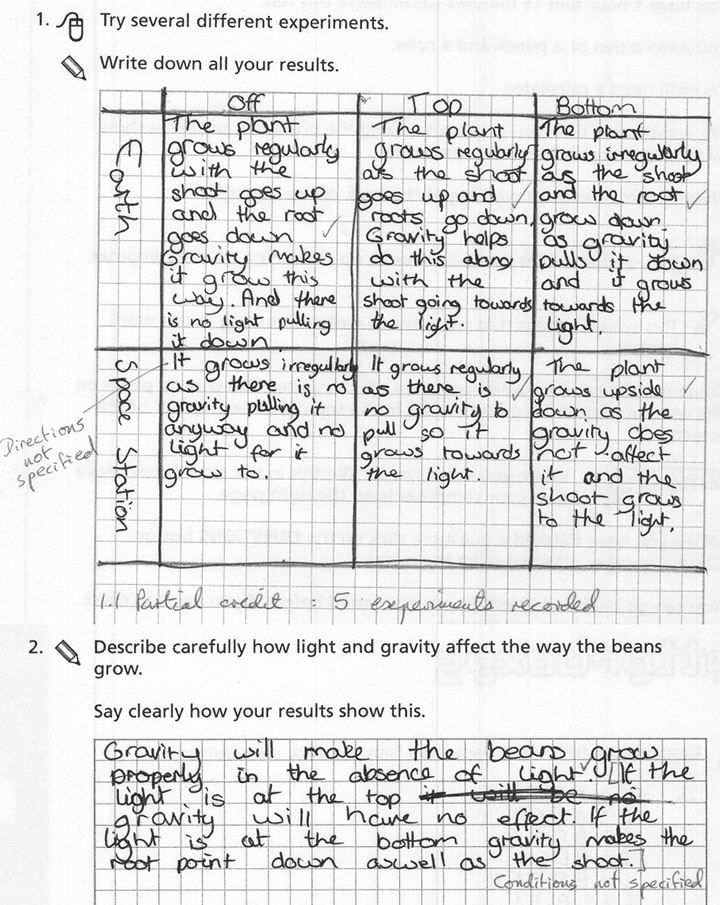 1. Try several different experiments.
Write down all your results.
Off Top Bottom
Earth
The plant
grows regularly
with the
shoot goes up
and the root
goes down
Gravity makes
it grow this
way. And there
is no light pulling
it down
The plant
grows regularly
as the shoot
goes up and
roots go down.
Gravity helps
do this along
with the
shoot going towards
the light.
The plant
grows irregularly
as the shoot
and the root
grow down
as gravity
pulls it down
and it grows
towards the
light.
Space Station
It grows irregullarly
as there is no
gravity pulling it
anyway and no
light for it
grow to.
It grows regularly
as there is
no gravity to
pull so it
grows towards
the light.
The plant
grows upside
down as the
gravity does
not affect
it and the
shoot grows
to the light.
Directions
not
specified
1.1 Partial credit : 5 experiments recorded
2. Describe carefully how light and gravity affect the way the beans
grow.
Say clearly how your results show this.
Gravity will make the beans grow
properly in the absence of light. [If the
light is at the top it will be no
gravity will have no effect. If the
light is at the bottom gravity makes the
root point down aswell as the shoot.]
Conditions not specified